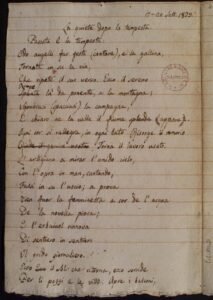 17-20 Sett. 1829.
La quiete dopo la tempesta.
Passata è la tempesta:
Odo augelli far festa (cantare), e la gallina,
Tornata in su la via,
Che ripete il suo verso. Ecco il sereno
Rompe là da ponente, a la montagna;
Sgombrasi la campagna,
E chiaro ne la valle il fiume
Ogni cor si rallegra, in ogni lato
Risorge il romorio
Torna il lavoro usato.
L'artigiano a mirar l'umido cielo,
Con l'opra in man, cantando,
Fassi in su l'uscio; a prova
Vien fuor la femminetta a cor de l'acqua
De la novella piova;
E l'erbaiuol rinnova
Di sentiero in sentiero
Il grido giornaliero.
Ecco il Sol che ritorna, ecco sorride
Per li poggi e le ville. Apre i balconi,